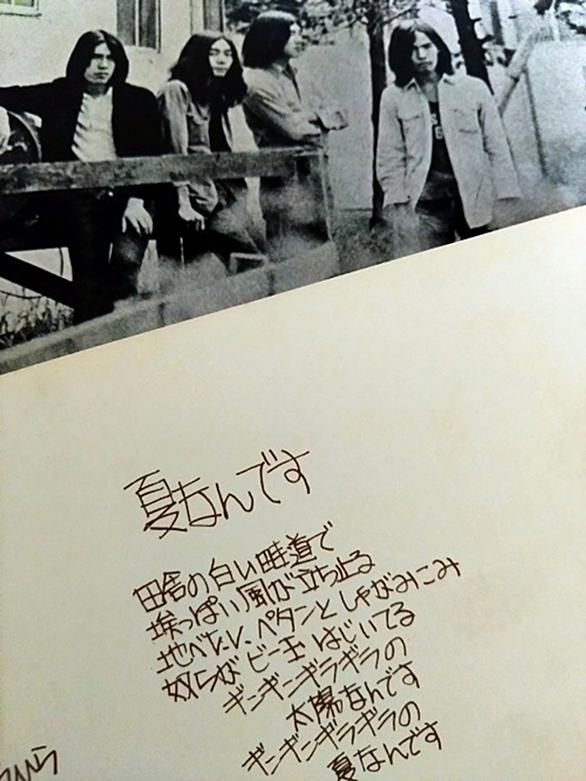 夏なんです
田舎の白い畦道で
埃っぽい風が立ち止る
地べたに ペタンと しゃがみこみ
奴らが ビー玉 はじいてる
ギンギンギラギラの
太陽なんです
ギンギンギラギラの
夏なんです